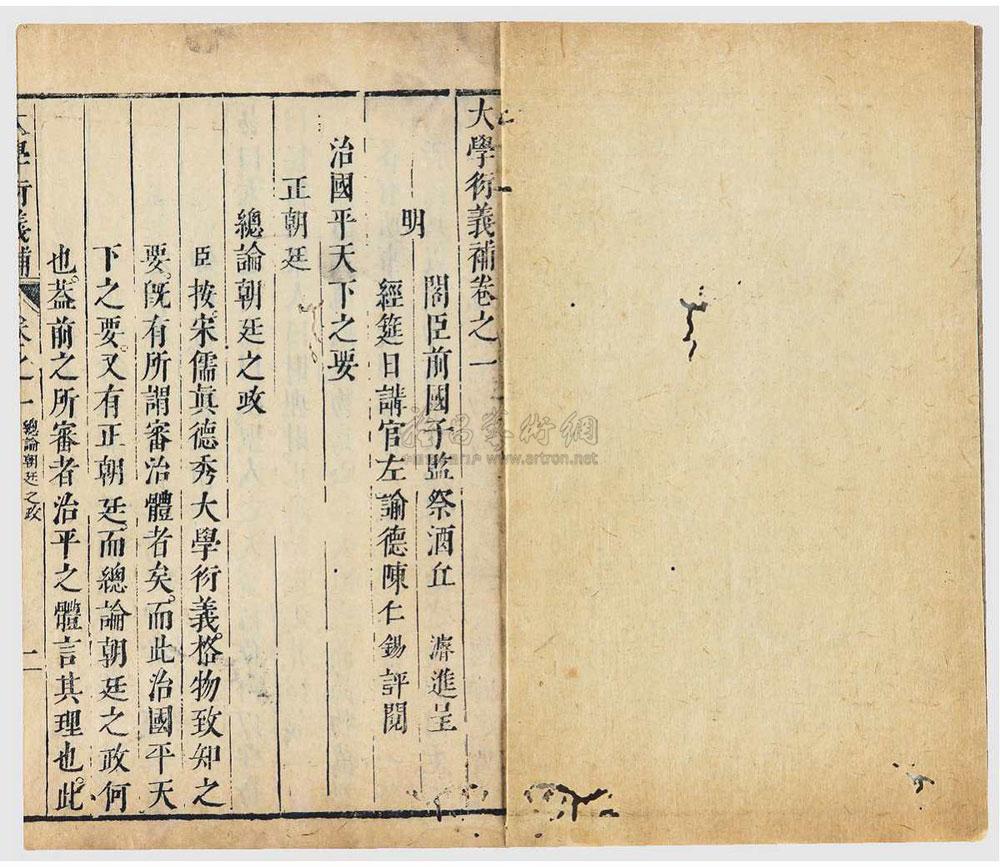 大學衍義補卷之一
明 閣臣前國子監祭酒丘 濬進呈
經筵日講官左諭德陳仁錫評閱
治國平天下之要
正朝廷
總論朝廷之政
臣按宋儒真德秀大學衍義格物致知之
要。既有所謂審治體者矣。而此治國平天
下之要。又有正朝廷而總論朝廷之政何
也。葢前之所審者治平之體言其理也。此
大學衍義補 卷之一 總論朝廷之政 一
www.artron.net